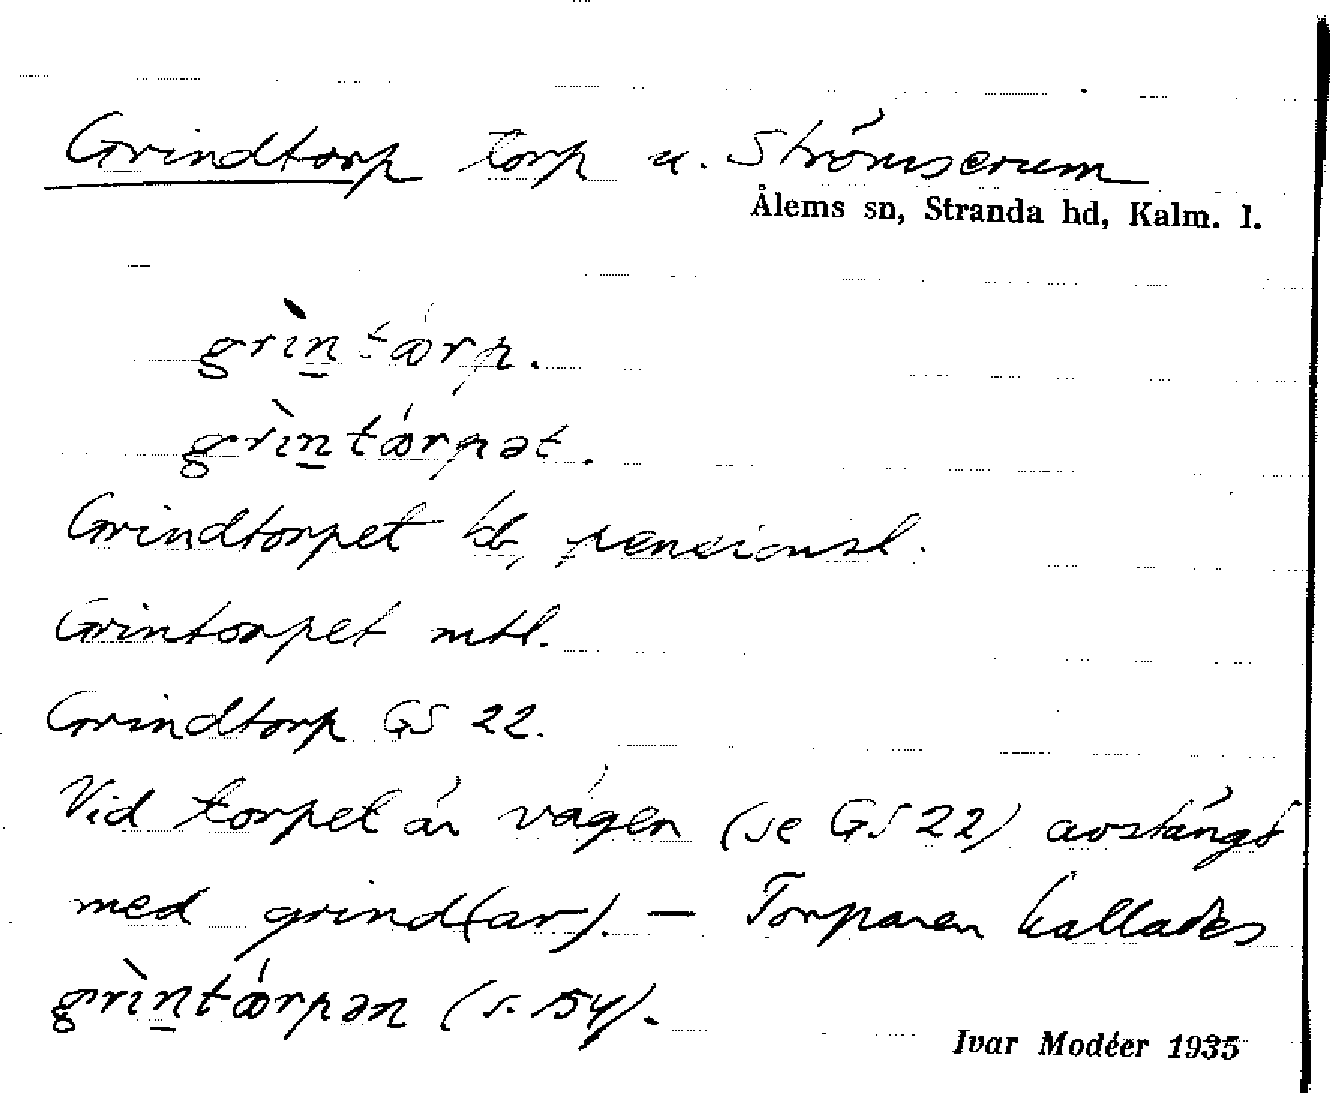 Grindtorp torp u. Strömserum
Ålems sn, Stranda hd, Kalm. l.
grìn̲tǿrp.
grìn̲tǿrpət.
Grindtorpet kb, pensionsl.
Grintorpet mtl.
Grindtorp GS 22.
Vid torpet är vägen (se GS 22) avstängd
med grind(ar). — Torparen kallades
grìn̲tǿrpən (s. 154).
Ivar Modéer 1935